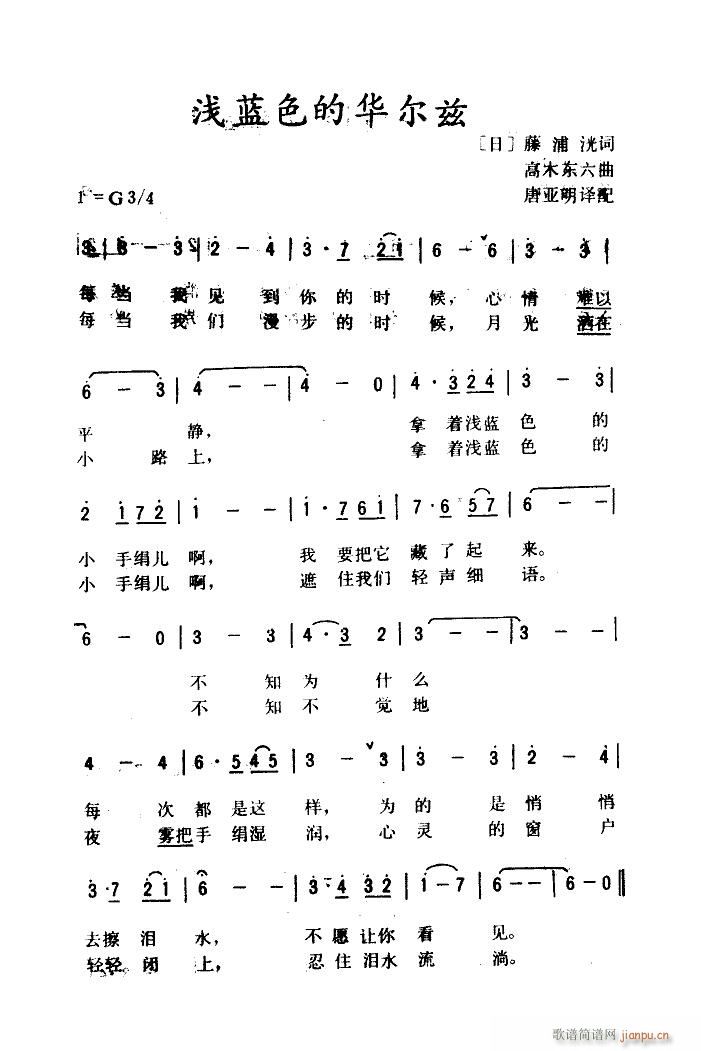 浅蓝色的华尔兹
［日］藤浦洸词
高木东六曲
1=G3/4
唐亚明译配
每当我见到你的时候，心情难以
每当我们漫步的时候，月光洒在
6 - 3 | 4 - - | 4 - 0 | 4·324 | 3 - 3 |
平静， 拿着浅蓝色的
小路上， 拿着浅蓝色的
2 172 | 1 - - | 1·761 | 7·657 | 6 - - |
小手绢儿啊， 我要把它藏了起来。
小手绢儿啊， 遮住我们轻声细语。
6 - 0 | 3 - 3 | 4·3 2 | 3 - - | 3 - - |
不知为什么
不知不觉地
4 - 4 | 6·545 | 3 - 3 | 3 - 3 | 2 - 4 |
每次都是这样，为的是悄悄
夜雾把手绢湿润，心灵的窗户
3·7 21 | 6 - - | 3·4 32 | 1-7 | 6-- | 6-0 ‖
去擦泪水， 不愿让你看见。
轻轻闭上， 忍住泪水流淌。
歌谱简谱网
jianpu.cn